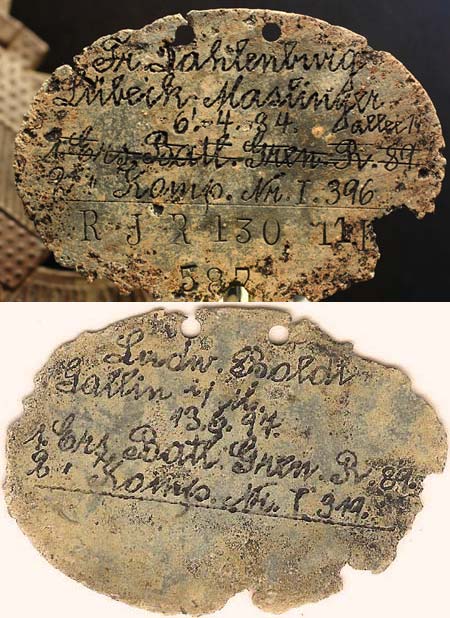 Fr. Dahlenburg
Lübeck. Maslinger
6.-4.84. Allee 14
1. Ers. Batl. Gren. R. 89.
2. " Komp. Nr. I. 396
R J R 130 11
587
Ludw. Boldt
Gallin i/M.
13.6.94.
1. Ers. Batl. Gren. R. 89.
2. " Komp. Nr. I 319.